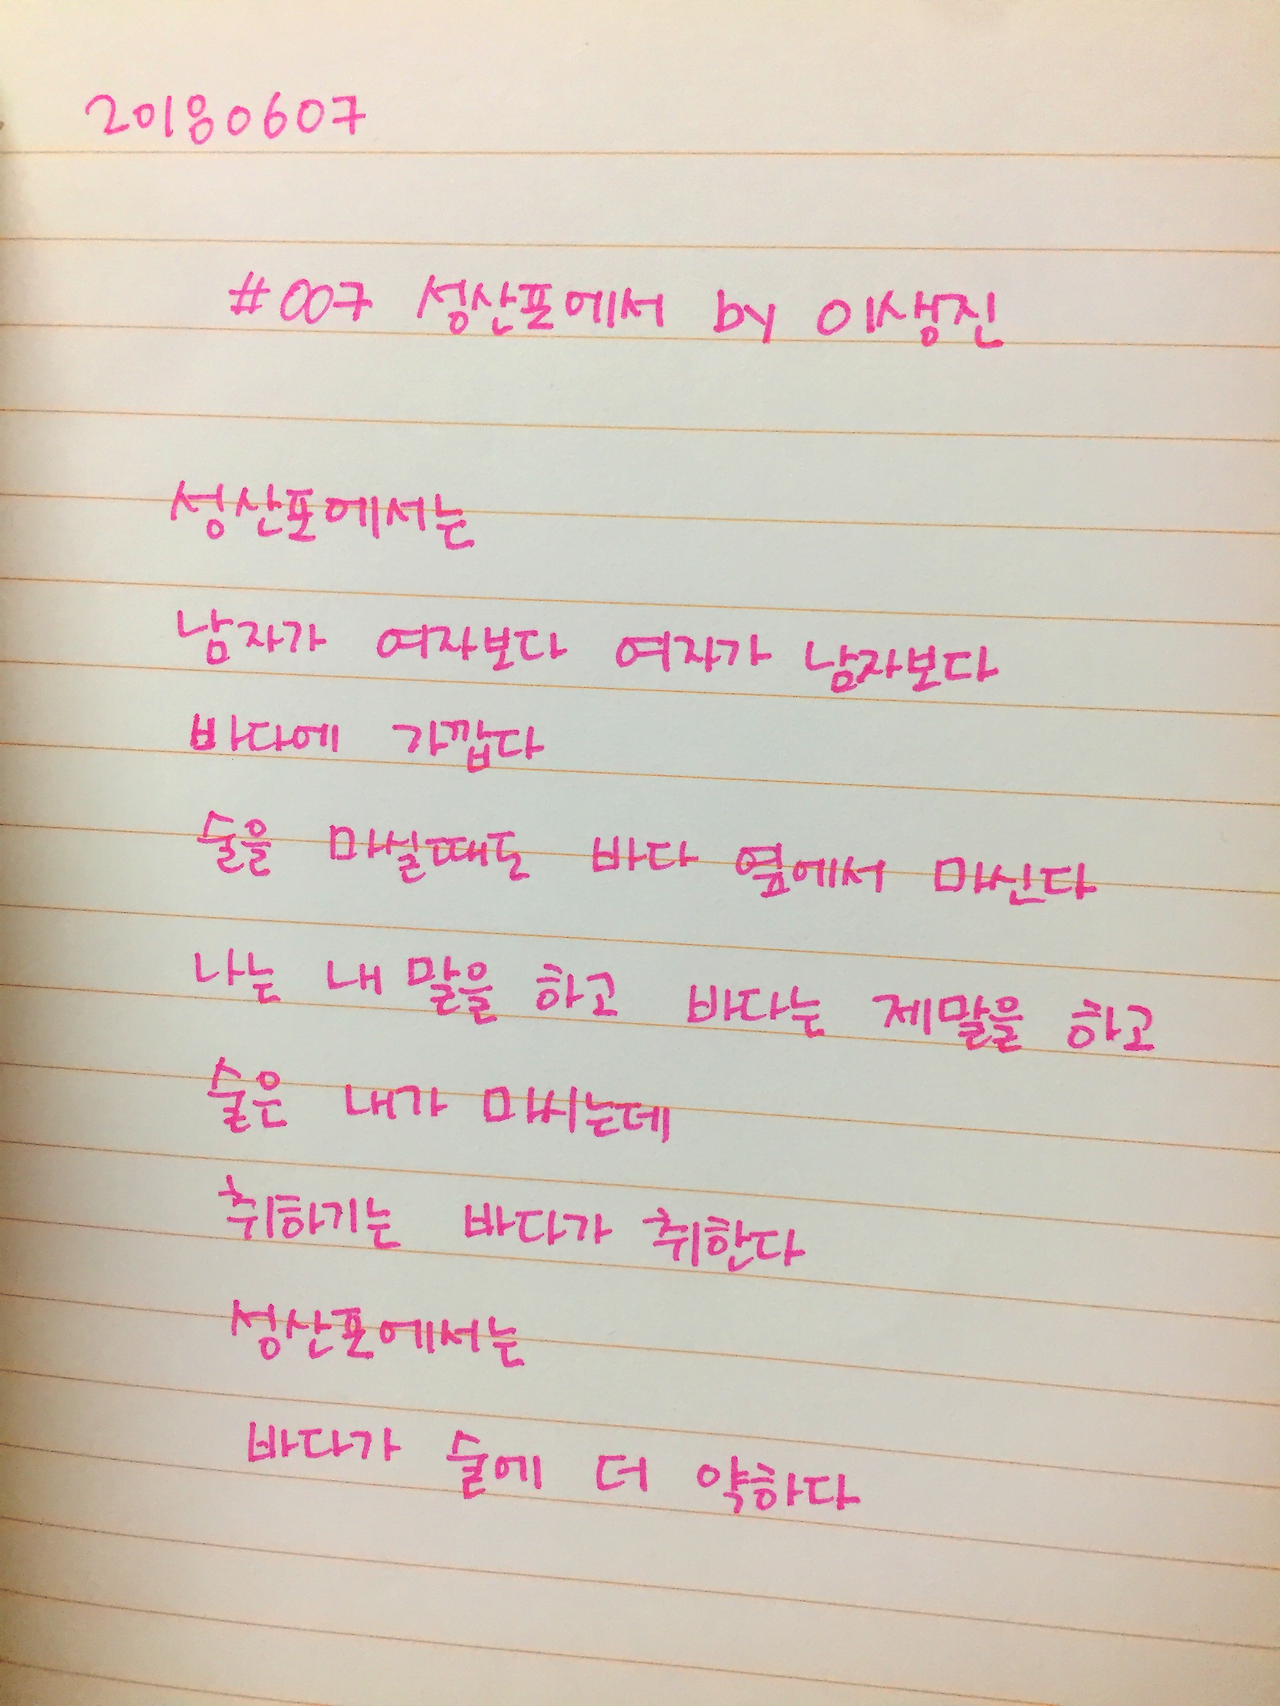 20180607
#007 성산포에서 by 이생진
성산포에서는
남자가 여자보다 여자가 남자보다
바다에 가깝다
술을 마실때도 바다 옆에서 마신다
나는 내 말을 하고 바다는 제말을 하고
술은 내가 마시는데
취하기는 바다가 취한다
성산포에서는
바다가 술에 더 약하다